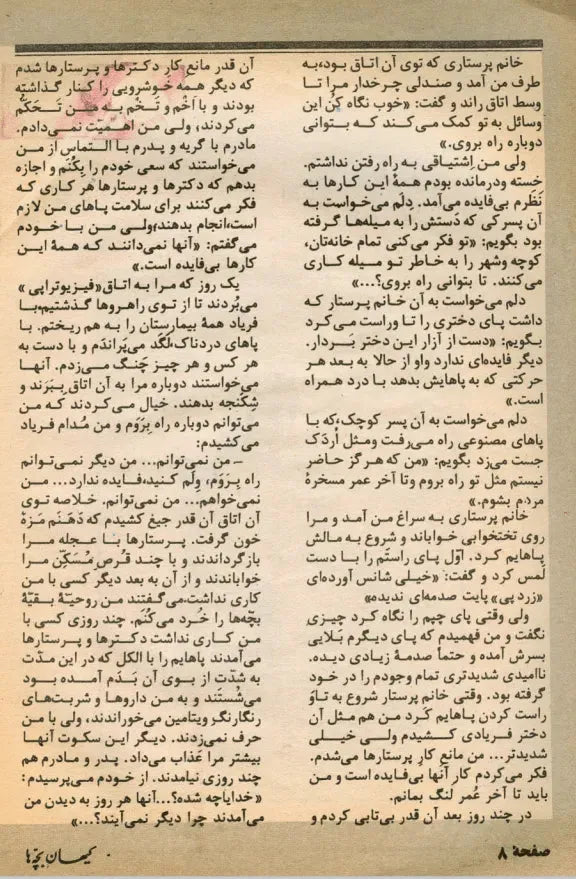 خانم پرستاری که توی آن اتاق بود،به
طرف من آمد و صندلی چرخدار مرا تا
وسط اتاق راند و گفت: «خوب نگاه کُن این
وسائل به تو کمک می‌کند که بتوانی
دوباره راه بروی.»
ولی من اِشتیاقی به راه رفتن نداشتم.
خسته ودرمانده بودم همهٔ این کارها به
نَظَرم بی‌فایده می‌آمد. دِلَم می‌خواست به
آن پسرکی که دَستش را به میله‌ها گرفته
بود بگویم: «تو فکر می‌کنی تمام خانه‌تان،
کوچه وشهر را به خاطر تو میله کاری
می‌کنند. تا بتوانی راه بروی؟...»
دلم می‌خواست به آن خانم پرستار که
داشت پای دختری را تا وراست می‌کرد
بگویم: «دست از آزار این دختر بَردار.
دیگر فایده‌ای ندارد واو از حالا به بعد هر
حرکتی که به پاهایش بدهد با درد همراه
است.»
دلم می‌خواست به آن پسر کوچک،که با
پاهای مصنوعی راه می‌رفت ومثل اُردَک
جست می‌زد بگویم: «من که هرگز حاضر
نیستم مثل تو راه بروم وتا آخر عمر مسخرهٔ
مردم بشوم.»
خانم پرستاری به سراغ من آمد و مرا
روی تختخوابی خواباند و شروع به مالش
پاهایم کرد. اوّل پای راستَم را با دست
لَمس کرد و گفت: «خیلی شانس آورده‌ای
«زرد پی» پایت صدمه‌ای ندیده»
ولی وقتی پای چپم را نگاه کرد چیزی
نگفت و من فهمیدم که پای دیگرم بَلایی
بسرش آمده و حتماً صدمهٔ زیادی دیده.
ناامیدی شدیدتری تمام وجودم را در خود
گرفته بود. وقتی خانم پرستار شروع به تاوَ
راست کردن پاهایم کَرد من هم مثل آن
دختر فریادی کشیدم ولی خیلی
شدیدتر... من مانع کارِ پرستارها می‌شدم.
فکر می‌کردم کار آنها بی‌فایده است و من
باید تا آخر عُمر لنگ بمانم.
در چند روز بعد آن قدر بی‌تابی کردم و
آن قدر مانع کار دکترها و پرستارها شدم
که دیگر همه خوشرویی را کنار گذاشته
بودند و با اَخْم و تَخْم به من تَحَکّم
می‌کردند، ولی من اهمیّت نمی‌دادم.
مادرم با گریه و پدرم با التماس از من
می‌خواستند که سعی خودم را بِکُنَم و اجازه
بدهم که دکترها و پرستارها هر کاری که
فکر می‌کنند برای سلامت پاهای من لازم
است،انجام بدهند،ولی من با خودم
می‌گفتم: «آنها نمی‌دانند که همهٔ این
کارها بی‌فایده است.»
یک روز که مرا به اتاق«فیزیوتراپی»
می‌بُردند تا از توی راهروها گذشتیم،با
فریاد همهٔ بیمارستان را به هم ریختم. با
پاهای دردناک،لَگَد می‌پَراندَم و با دست به
هر کس و هر چیز چَنگ می‌زدم. آنها
می‌خواستند دوباره مرا به آن اتاق ببَرند و
شِکَنجه بدهند. خیال می‌کردند که من
می‌توانم دوباره راه بِرَوَم و من مُدام فریاد
می‌کشیدم:
ـ من نمی‌توانم... من دیگر نمی‌توانم
راه بِرَوَم، وِلَم کُنید،فایده ندارد... من
نمی‌خواهم... من نمی‌توانم. خلاصه توی
آن اتاق آن قدر جیغ کشیدم که دَهَنَم مَزهٔ
خون گرفت. پرستارها با عجله مرا
بازگرداندند و با چند قُرص مُسَکّن مرا
خواباندند و از آن به بعد دیگر کسی با من
کاری نداشت.می‌گفتند من روحیّهٔ بقیّهٔ
بچّه‌ها را خُرد می‌کُنَم. چند روزی کسی با
من کاری نداشت دکترها و پرستارها
می‌آمدند پاهایم را با الکل که در این مدّت
به شدّت از بوی آن بَدَم آمده بود
می‌شُستَند و به من داروها و شربت‌های
رنگارنگر ویتامین می‌خوراندند، ولی با من
حرف نمی‌زدند. دیگر این سکوت آنها
بیشتر مرا عَذاب می‌داد. پدر و مادرم هم
چند روزی نیامدند. از خودم می‌پرسیدم:
«خدایاچه شده؟...آنها هر روز به دیدن من
می‌آمدند چرا دیگر نمی‌آیند؟...»
صفحهٔ ۸
کیهان بچّه‌ها